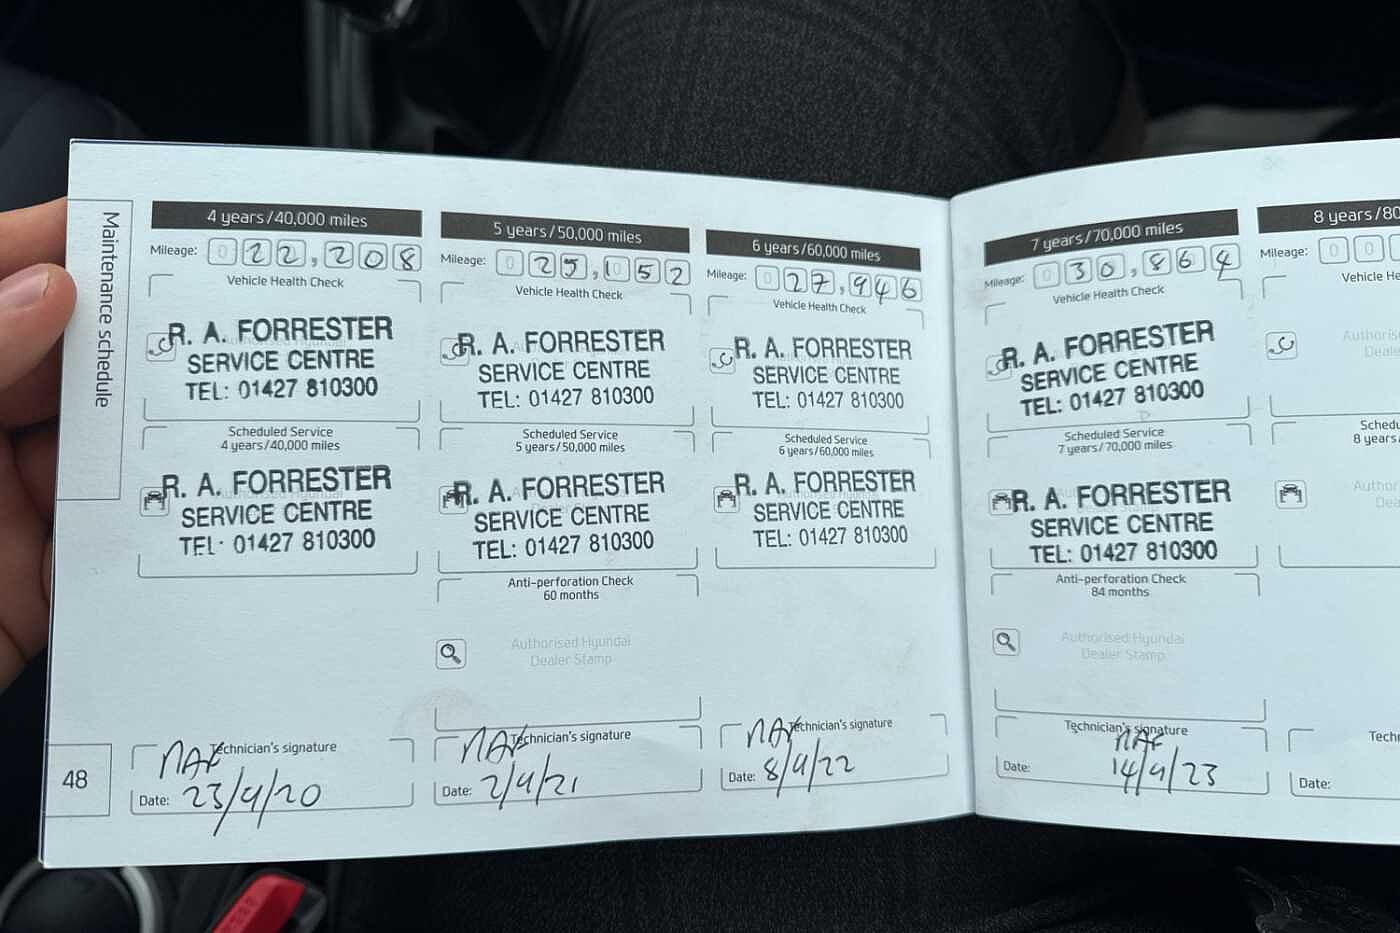 Maintenance schedule
4 years/40,000 miles
Mileage: 0 2 2 , 2 0 8
Vehicle Health Check
R. A. FORRESTER
SERVICE CENTRE
TEL: 01427 810300
Scheduled Service
4 years/40,000 miles
R. A. FORRESTER
SERVICE CENTRE
TEL: 01427 810300
Technician's signature
Date: 23/4/20
48
5 years/50,000 miles
Mileage: 0 2 5 , 1 5 2
Vehicle Health Check
R. A. FORRESTER
SERVICE CENTRE
TEL: 01427 810300
Scheduled Service
5 years/50,000 miles
R. A. FORRESTER
SERVICE CENTRE
TEL: 01427 810300
Anti-perforation Check
60 months
Authorised Hyundai
Dealer Stamp
Technician's signature
Date: 2/4/21
6 years/60,000 miles
Mileage: 0 2 7 , 9 4 6
Vehicle Health Check
R. A. FORRESTER
SERVICE CENTRE
TEL: 01427 810300
Scheduled Service
6 years/60,000 miles
R. A. FORRESTER
SERVICE CENTRE
TEL: 01427 810300
Technician's signature
Date: 8/4/22
7 years/70,000 miles
Mileage: 0 3 0 , 8 6 4
Vehicle Health Check
R. A. FORRESTER
SERVICE CENTRE
TEL: 01427 810300
Scheduled Service
7 years/70,000 miles
R. A. FORRESTER
SERVICE CENTRE
TEL: 01427 810300
Anti-perforation Check
84 months
Authorised Hyundai
Dealer Stamp
Technician's signature
Date: 14/4/23
8 years/80
Mileage: 0 0
Vehicle He
Authoris
Deale
Schedu
8 years/
Author
Dea
Techn
Date: